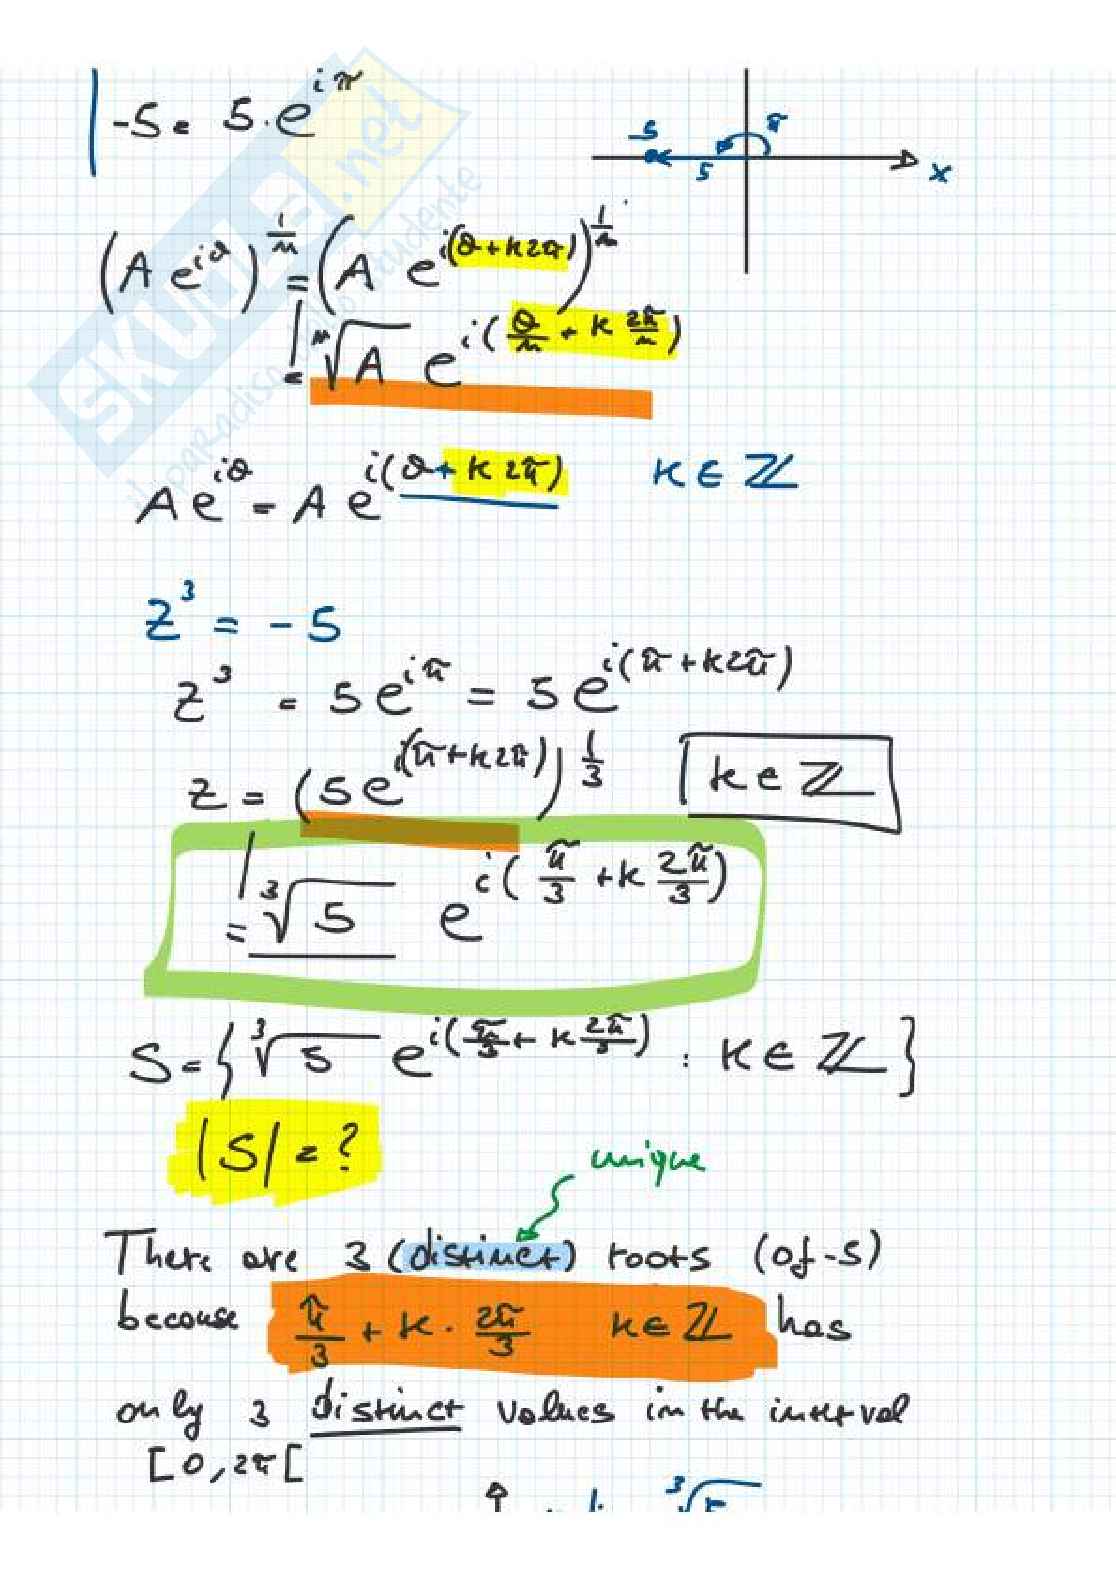 -5 = 5·e^{iπ}
-5
5
π
x
(A e^{iθ})^{1/n} = (A e^{i(θ+k2π)})^{1/n}
= ⁿ√A e^{i(θ/n + k 2π/n)}
A e^{iθ} = A e^{i(θ+k2π)} k∈ℤ
z³ = -5
z³ = 5e^{iπ} = 5e^{i(π+k2π)}
z = (5e^{i(π+k2π)})^{1/3} k∈ℤ
= ³√5 e^{i(π/3 + k 2π/3)}
S = { ³√5 e^{i(π/3 + k 2π/3)} : k∈ℤ }
|S| = ?
unique
There are 3 (distinct) roots (of -5)
because π/3 + k · 2π/3 k∈ℤ has
only 3 distinct values in the interval
[0, 2π[
SKUOLA.net
il paradiso dello studente